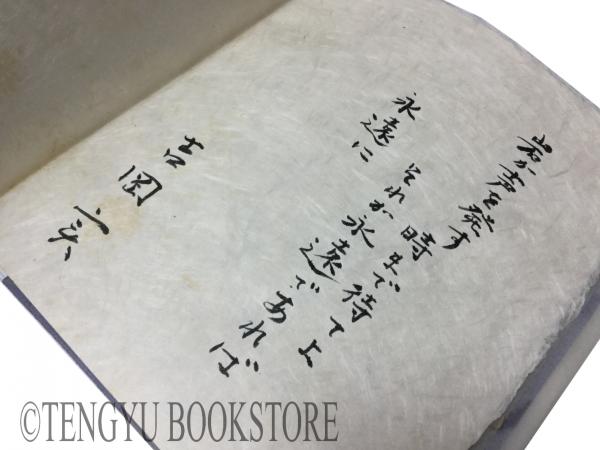 岩が声を発す
時まで待てよ
それが永遠であれば
永遠に
吉岡実
©TENGYU BOOKSTORE